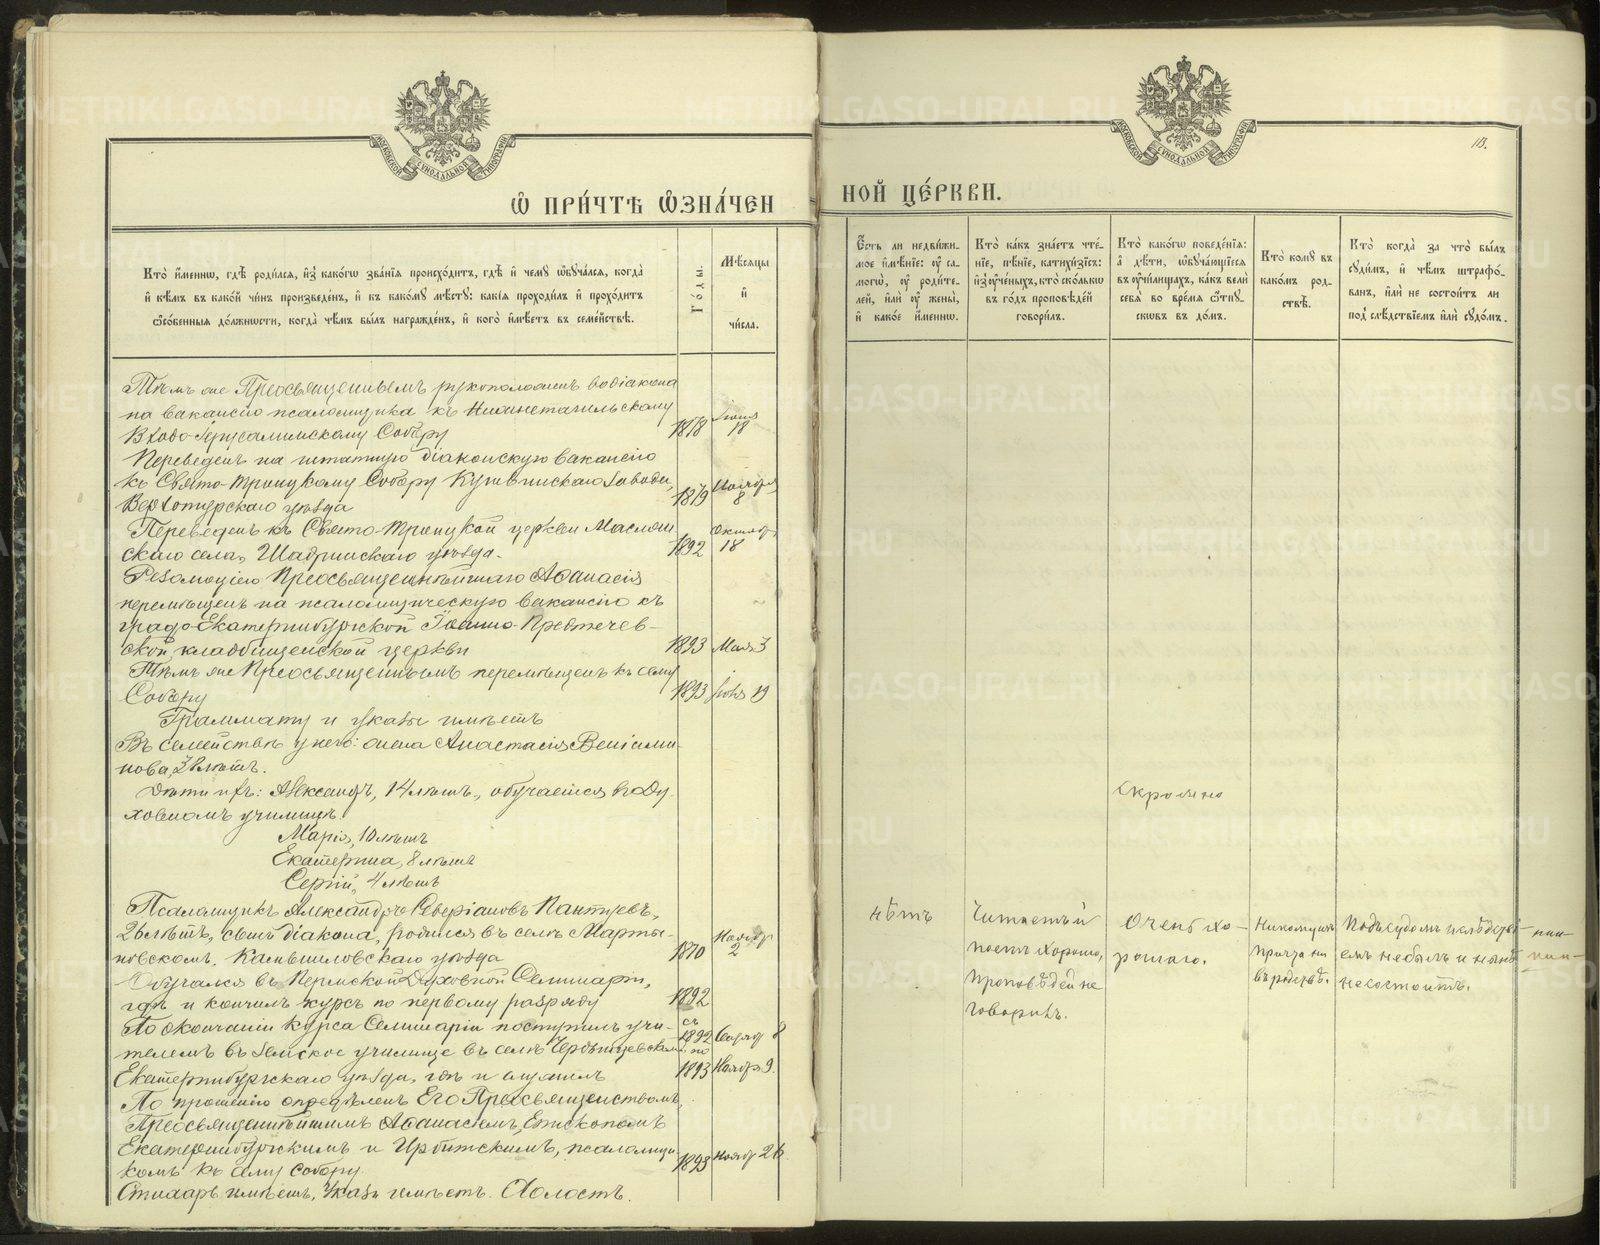 Ѡ ПРИ́ЧТѢ Ѡ҆ЗНА́ЧЕН
НОЙ ЦЕ́РКВИ.
113.
Кто̀ и҆́менно, гдѣ̀ роди́лсѧ, и҆з̾ како́гѡ зва́нїѧ происхо́дитъ, гдѣ̀ и҆ чемꙋ̀ ѡ҆бꙋча́лсѧ, когда̀
и҆ кѣ́мъ въ како́й чи́нъ произведе́нъ, и҆ къ како́мꙋ мѣ́стꙋ: какі̑ѧ проходи́лъ и҆ прохо́дитъ
ѻ҆со́бенныѧ до́лжности, когда̀ чѣ́мъ бы́лъ награжде́нъ, и҆ кого̀ и҆мѣ́етъ въ семе́йствѣ.
Го́ды.
Мѣ́сѧцы
и҆
чи́сла.
Е҆́сть ли недви́жи-
мое и҆мѣ́нїе: ᲂу҆ са-
могѡ̀, ᲂу҆ роди́те-
лей, и҆лѝ ᲂу҆ жены̀,
и҆ како́е и҆́менно.
Кто̀ ка́къ зна́етъ чте́-
нїе, пѣ́нїе, катихи́зїсъ:
и҆з̾ ᲂу҆че́ныхъ, кто̀ ско́лькѡ
въ го́дъ проповѣ́дей
говори́лъ.
Кто̀ како́гѡ поведе́нїѧ:
а҆ дѣ́ти, ѡ҆бꙋча́ющїесѧ
въ ᲂу҆чи́лищахъ, ка́къ велѝ
себѧ̀ во вре́мѧ ѿпꙋ-
скѡвъ въ до́мъ.
Кто̀ комꙋ̀ въ
како́мъ род-
ствѣ̀.
Кто̀ когда̀ за что̀ бы́лъ
сꙋди́мъ, и҆ чѣ́мъ штрафо́-
ванъ, и҆лѝ не состои́тъ ли
под̾ слѣ́дствїемъ и҆лѝ сꙋдо́мъ.
Тѣмъ же Преосвященнымъ рукоположенъ во діакона
на вакансію псаломщика къ Нижнетагильскому
Входо-Іерусалимскому Собору 1878 Іюня 18
Переведенъ на штатную діаконскую вакансію
къ Свято-Троицкому Собору Кушвинскаго завода,
Верхотурскаго уѣзда 1879 Ноября 8
Переведенъ къ Свято-Троицкой церкви Маслян
скаго села, Шадринскаго уѣзда. 1892 Октября 18
Резолюціею Преосвященнѣйшаго Аѳанасія
перемѣщенъ на псаломщическую вакансію къ
градо-Екатеринбургской Іоанно-Предтечев-
ской кладбищенской церкви 1893 Мая 3
Тѣмъ же Преосвященнымъ перемѣщенъ къ сему
Собору 1893 Іюля 19
Граммату и указы имѣетъ
Въ семействѣ у него: жена Анастасія Веніами-
нова, лѣтъ.
Дѣти ихъ: Александръ, 14 лѣтъ, обучается въ Ду-
ховномъ училищѣ. Скромно
Марія, 10 лѣтъ
Екатерина, 8 лѣтъ
Сергій, 4 лѣтъ
Псаломщикъ Александръ Северіановъ Пантуевъ,
26 лѣтъ, сынъ діакона, родился въ селѣ Марты-
новскомъ, Камышловскаго уѣзда 1870 Ноябр 2
Обучался въ Пермской Духовной Семинаріи,
гдѣ и кончилъ курсъ по первому разряду 1892
По окончаніи курса Семинаріи поступилъ учи-
телемъ въ земское училище въ селѣ
Екатеринбургскаго уѣзда, гдѣ и служилъ
съ 1892 8
по 1893 Ноябр 9.
По прошенію опредѣленъ Его Преосвященствомъ,
Преосвященнѣйшимъ Аѳанасіемъ, Епископомъ
Екатеринбургскимъ и Ирбитскимъ, псаломщи
комъ къ сему собору 1893 Ноябр 26
Стихарь имѣетъ. Указъ имѣетъ. Холостъ.
нѣтъ
Читаетъ и
поетъ хорошо,
проповѣдей не
говоритъ.
Очень хо-
рошаго.
Никому изъ
причта ни
въ родствѣ.
Подъ судомъ и слѣдстві-
емъ не былъ и нынѣ
не состоитъ.